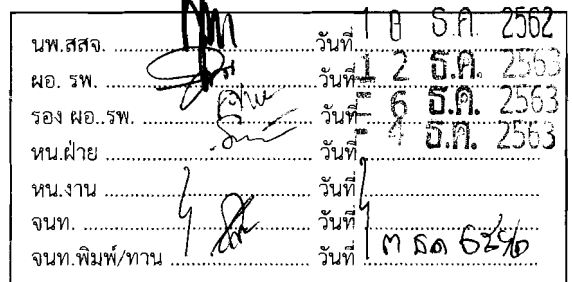 นพ.สสจ. ............ วันที่ 1 8 ธ.ค. 2562
ผอ. รพ. ............ วันที่ 1 2 ธ.ค. 2563
รอง ผอ..รพ. ............ วันที่ - 6 ธ.ค. 2563
หน.ฝ่าย ............ วันที่ - 4 ธ.ค. 2563
หน.งาน ............ วันที่ ............
จนท. ............ วันที่ ............
จนท.พิมพ์/ทาน ............ วันที่ ๓ ธค